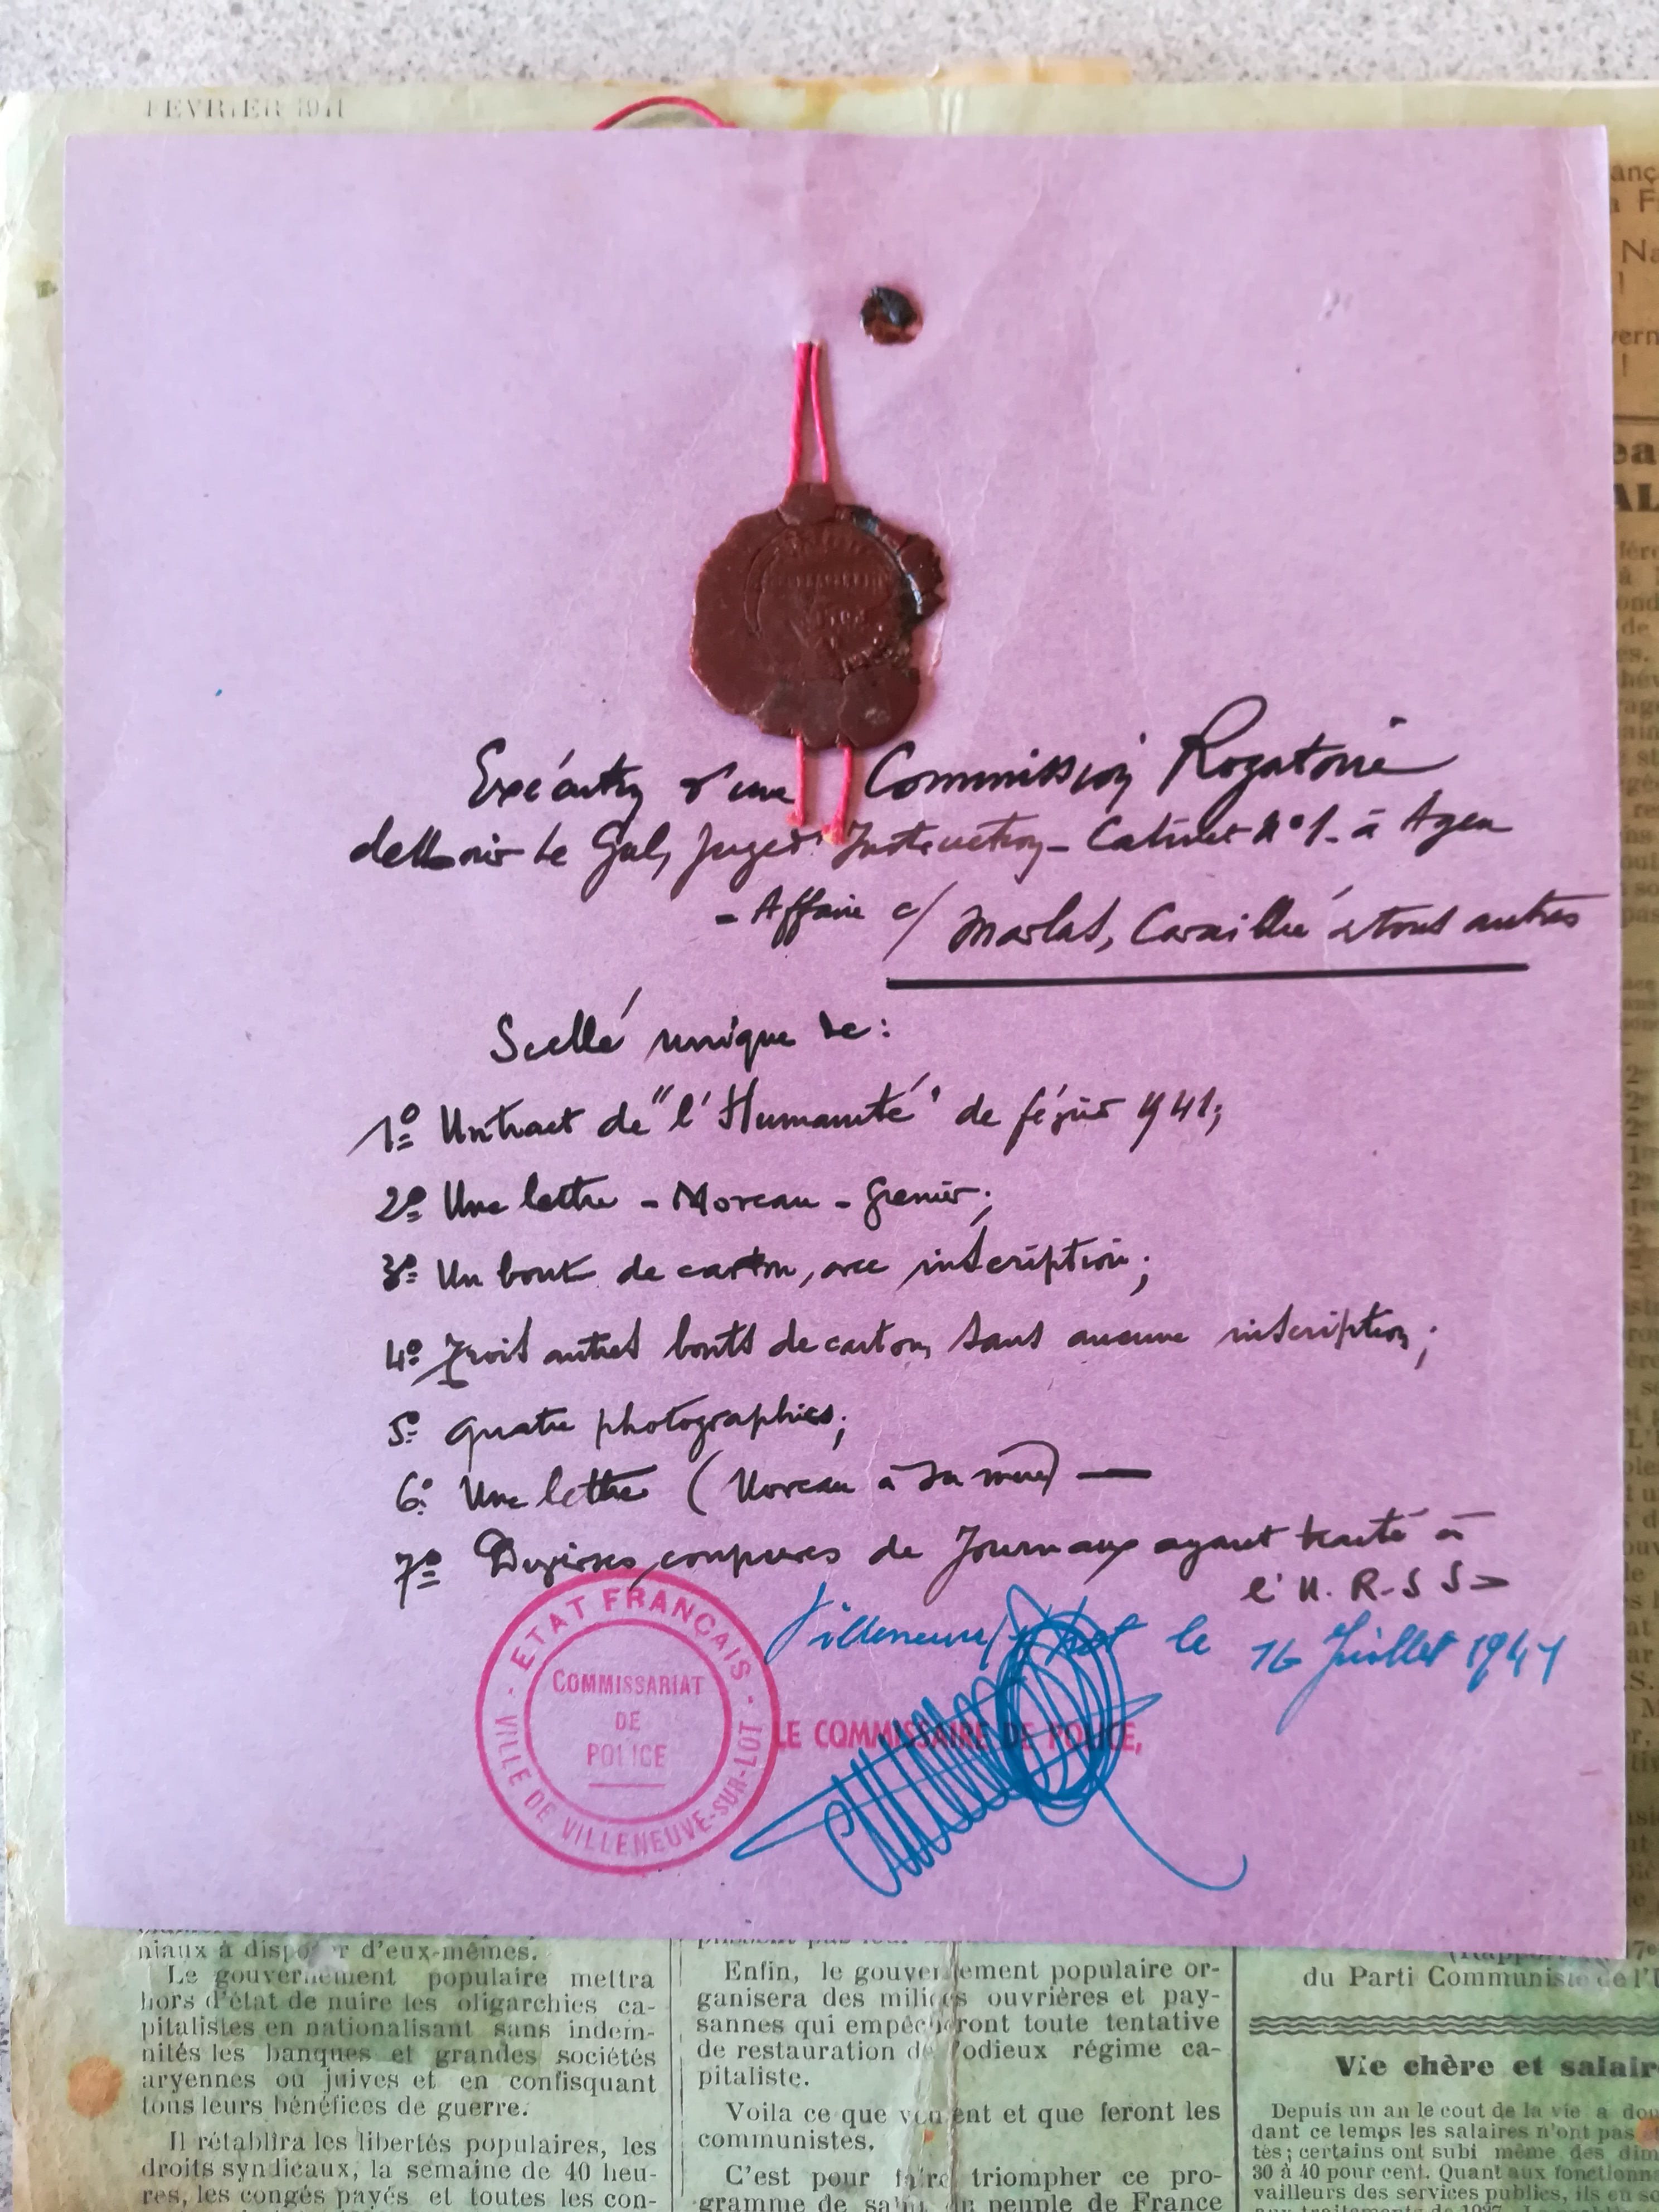 FÉVRIER 1941
Exécution d'une Commission Rogatoire
de Monsieur Le Gal, Juge d'Instruction - Cabinet N° 1 - à Agen
- Affaire c/ Marlas, Caraillé et tous autres
Scellé unique de :
1º Un tract de "l'Humanité" de février 1941;
2º Une lettre - Moreau - Grenier;
3º Un bout de carton, avec inscription;
4º Trois autres bouts de carton, sans aucune inscription;
5º Quatre photographies;
6º Une lettre (Moreau à sa mère) —
7º Diverses coupures de Journaux ayant traité à
l'U.R.S.S.
Villeneuve s/Lot le 16 Juillet 1941
- ETAT FRANÇAIS -
VILLE DE VILLENEUVE-SUR-LOT
COMMISSARIAT
DE
POLICE
LE COMMISSAIRE DE POLICE,
niaux à disposer d'eux-mêmes.
Le gouvernement populaire mettra
hors d'état de nuire les oligarchies ca-
pitalistes en nationalisant sans indem-
nités les banques et grandes sociétés
aryennes ou juives et en confisquant
tous leurs bénéfices de guerre.
Il rétablira les libertés populaires, les
droits syndicaux, la semaine de 40 heu-
res, les congés payés et toutes les con-
Enfin, le gouvernement populaire or-
ganisera des milices ouvrières et pay-
sannes qui empêcheront toute tentative
de restauration de l'odieux régime ca-
pitaliste.
Voila ce que veulent et que feront les
communistes.
C'est pour faire triompher ce pro-
gramme de salut du peuple de France
du Parti Communiste de l'U
Vie chère et salair
Depuis un an le cout de la vie a dou
dant ce temps les salaires n'ont pas
tés ; certains ont subi même des dim
30 à 40 pour cent. Quant aux fonctionn
vailleurs des services publics, ils en so